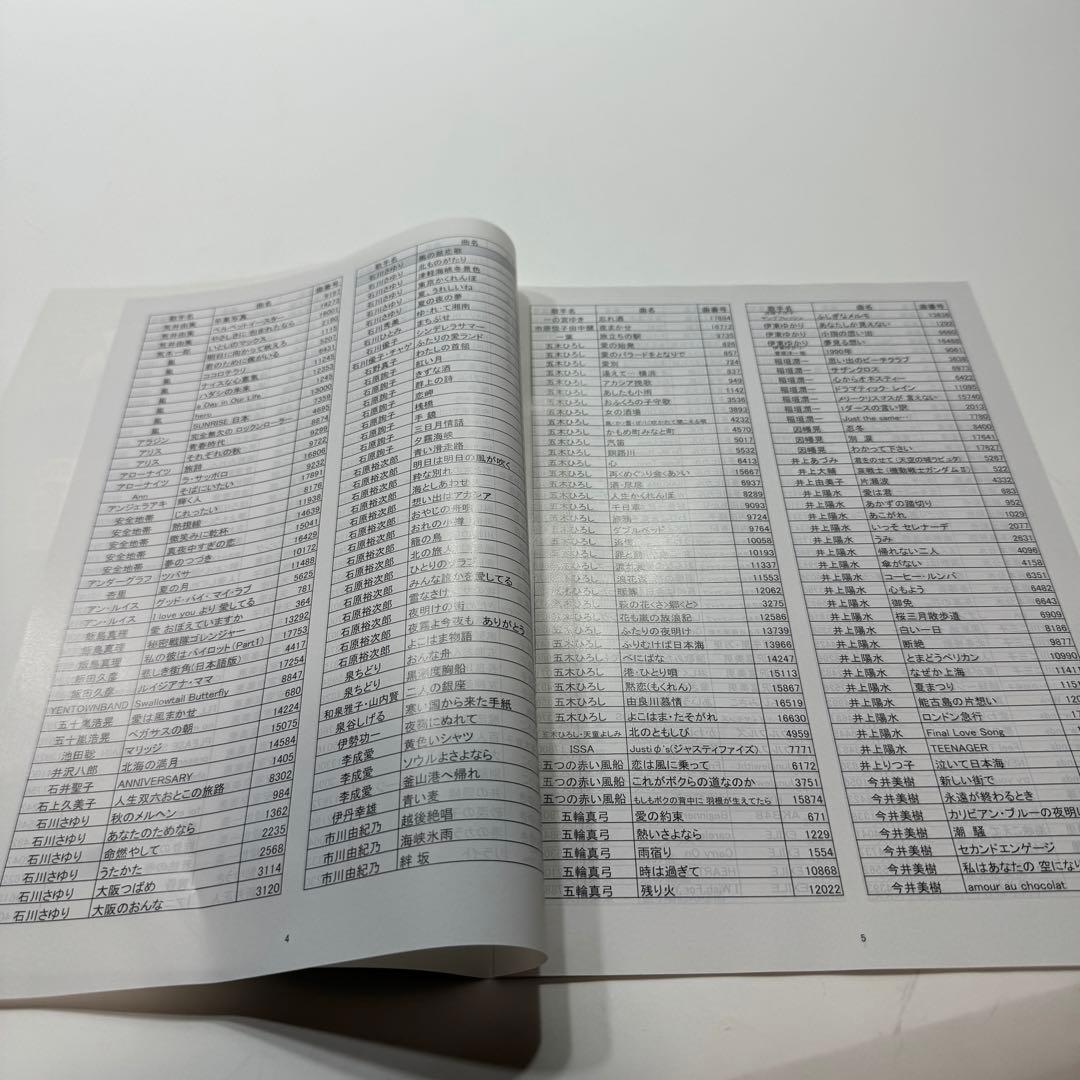 曲名 曲番号
荒井由実 卒業写真
ベルベット・イースター
やさしさに包まれたなら
いとしのマックス
明日に向かって吠えろ
君のために僕がいる
ココロチラリ
ナイスな心意気
ハダシの未来
a Day in Our Life
SUNRISE 日本
完全無欠の ロックンローラー
アリス 青春時代
アリス それぞれの秋
アローナイツ 旅路 9232
アローナイツ ラ・サッポロ 17891
Ann そばにいたい 8176
アンジェラアキ 輝く人 11938
安全地帯 じれったい 14639
安全地帯 熱視線 15041
安全地帯 微笑みに乾杯 16429
安全地帯 真夜中すぎの恋 10172
安全地帯 夢のつづき 11488
アンダーグラフ ツバサ 5625
杏里 夏の月 781
アン・ルイス グッド・バイ・マイ・ラブ 364
アン・ルイス I love you より 愛してる 13292
飯島真理 愛 おぼえていますか 17753
秘密戦隊ゴレンジャー 4417
飯島真理 私の彼はパイロット(Part1) 17254
新田久彦 悲しき街角(日本語版) 8847
飯田久彦 ルイジアナ・ママ 680
YENTOWNBAND Swallowtail Butterfly 14224
五十嵐浩晃 愛は風まかせ 15075
五十嵐浩晃 ペガサスの朝 14584
池田聡 マリッジ 1405
井沢八郎 北海の満月 8302
石井聖子 ANNIVERSARY 984
石上久美子 人生双六おとこの旅路 1362
石川さゆり 秋のメルヘン 2235
石川さゆり あなたのためなら 2568
石川さゆり 命燃やして 3114
石川さゆり うたかた 3120
石川さゆり 大阪つばめ
石川さゆり 大阪のおんな
4
歌手名 曲名
石川さゆり 風の盆恋歌
石川さゆり 北ものがたり
石川さゆり 津軽海峡冬景色
石川さゆり 東京かくれんぼ
石川さゆり 夏、うれしいね
石川さゆり 夏の夜の夢
石川秀美 ゆ・れ・て湘南
石川ひとみ まちぶせ
石川優子 シンデレラサマー
石川優子・チャゲ ふたりの愛ランド
石野真子 わたしの首領
石原詢子 紅い月
石原詢子 きずな酒
石原詢子 群上の詩
石原詢子 恋岬
石原詢子 桟橋
石原詢子 手 鏡
石原詢子 三日月情話
石原裕次郎 青い滑走路
石原裕次郎 夕霧海峡
石原裕次郎 明日は明日の風が吹く
石原裕次郎 粋な別れ
石原裕次郎 海としあわせ
石原裕次郎 想い出はアカシア
石原裕次郎 おやじの舟唄
石原裕次郎 おれの小樽
石原裕次郎 籠の鳥
石原裕次郎 北の旅人
石原裕次郎 ひとりのソーラン
石原裕次郎 みんな誰かを愛してる
石原裕次郎 雪なさけ
石原裕次郎 夜明けの街
石原裕次郎 夜霧よ今夜も ありがとう
泉ちどり よこはま物語
泉ちどり おんな舟
泉ちどり 黒潮度胸船
和泉雅子・山内賢 二人の銀座
泉谷しげる 寒い国から来た手紙
伊勢功一 夜霧にぬれて
李成愛 黄色いシャツ
李成愛 ソウルよさよなら
李成愛 釜山港へ帰れ
伊丹幸雄 青い麦
市川由紀乃 越後絶唱
市川由紀乃 海峡氷雨
市川由紀乃 絆 坂
歌手名 曲名 曲番号
一の宮ゆき 忘れ酒 17884
夜まかせ 16712
一葉 旅立ちの駅 9735
五木ひろし 愛の始発 826
五木ひろし 愛のバラードをとなりで 857
五木ひろし 愛別 724
五木ひろし 逢えて… 横浜 837
五木ひろし アカシア挽歌 949
五木ひろし あしたも小雨 1142
五木ひろし おふくろの子守歌 3536
五木ひろし 女の酒場 3893
五木ひろし 4232
五木ひろし かもめ町みなと町 4570
五木ひろし 汽笛 5017
五木ひろし 釧路川 5532
五木ひろし 心 6413
五木ひろし 再<めぐ>り会<あ>い 15667
五木ひろし 酒・尽尽 6937
五木ひろし 人生かくれんぼ 8289
五木ひろし 千日草 9093
五木ひろし 9724
五木ひろし ダブルベッド 9764
五木ひろし 浜唄 10058
五木ひろし 10193
五木ひろし 11337
五木ひろし 浪花衣 11553
五木ひろし 暖簾 12062
五木ひろし 萩の花くさ>郷くど> 3275
五木ひろし 花も嵐の放浪記 12586
五木ひろし ふたりの夜明け 13739
五木ひろし ふりむけば日本海 13966
五木ひろし べにばな 14247
五木ひろし 港・ひとり唄 15113
五木ひろし 黙恋(もくれん) 15867
五木ひろし 由良川慕情 16519
五木ひろし よこはま・たそがれ 16630
五木ひろし・天童よしみ 北のともしび 4959
ISSA Justi φ's(ジャスティファイズ) 7771
五つの赤い風船 恋は風に乗って 6172
五つの赤い風船 これがボクらの道なのか 3751
五つの赤い風船 もしもボクの背中に 羽根が生えてたら 15874
五輪真弓 愛の約束 671
五輪真弓 熱いさよなら 1229
五輪真弓 雨宿り 1554
五輪真弓 時は過ぎて 10868
五輪真弓 残り火 12022
歌手名 曲名 曲番号
ふしぎなメルモ 13836
伊東ゆかり あなたしか見えない 1292
伊東ゆかり 小指の思い出 6660
伊東ゆかり 夢見る想い 16488
1990年 9061
稲垣潤一 思い出のビーチクラブ 3638
稲垣潤一 サザンクロス 6922
稲垣潤一 心からオネスティー 6422
稲垣潤一 ドラマティック・レイン 11095
稲垣潤一 メリークリスマスが 言えない 15740
稲垣潤一 1ダースの言い訳 2013
稲垣潤一 Just the same… 7780
因幡晃 忍冬 8400
因幡晃 別 涙 17641
因幡晃 わかって下さい 17821
井上あづみ 君をのせて(天空の城ラピュタ) 5267
井上大輔 哀戦士(機動戦士ガンダムⅡ) 522
井上由美子 片瀬波 4332
井上陽水 愛は君 683
井上陽水 あかずの踏切り 952
井上陽水 あこがれ 1029
井上陽水 いっそ セレナーデ 2077
井上陽水 うみ 2631
井上陽水 帰れない二人 4096
井上陽水 傘がない 4158
井上陽水 コーヒー・ルンバ 6351
井上陽水 心もよう 6482
井上陽水 御免 6643
井上陽水 桜三月散歩道 6909
井上陽水 白い一日 8186
井上陽水 断絶 9877
井上陽水 とまどうペリカン 10990
井上陽水 なぜか上海
井上陽水 夏まつり
井上陽水 能古島の片想い
井上陽水 ロンドン急行
井上陽水 Final Love Song
井上陽水 TEENAGER
井上りつ子 泣いて日本海
今井美樹 新しい街で
今井美樹 永遠が終わるとき
今井美樹 カリビアン・ブルーの夜明け
今井美樹 潮 騒
今井美樹 セカンドエンゲージ
今井美樹 私はあなたの 空になり
今井美樹 amour au chocolat
5